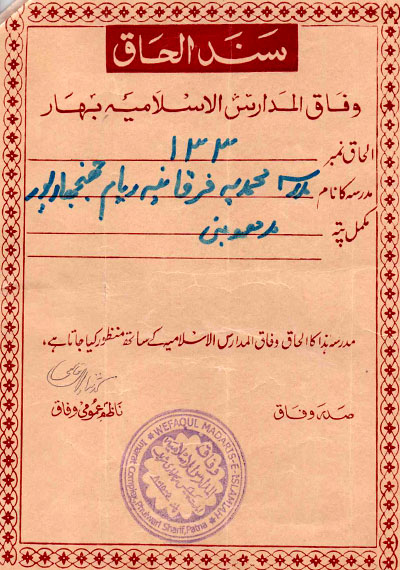 سَنَد الحَاق
وفاق المدارس الاسلامیہ بہار
الحاق نمبر ۱۳۳
مدرسہ کا نام مدرسہ محمدیہ فرقانیہ ریام جھنجھارپور
مکمل پتہ مدھوبنی
مدرسہ ہذا کا الحاق وفاق المدارس الاسلامیہ کے ساتھ منظور کیا جاتا ہے،
صدر وفاق
ناظم عمومی وفاق
WEFAQUL MADARIS-E-ISLAMIAH
Imarat Complex, Phulwari Sharif, Patna